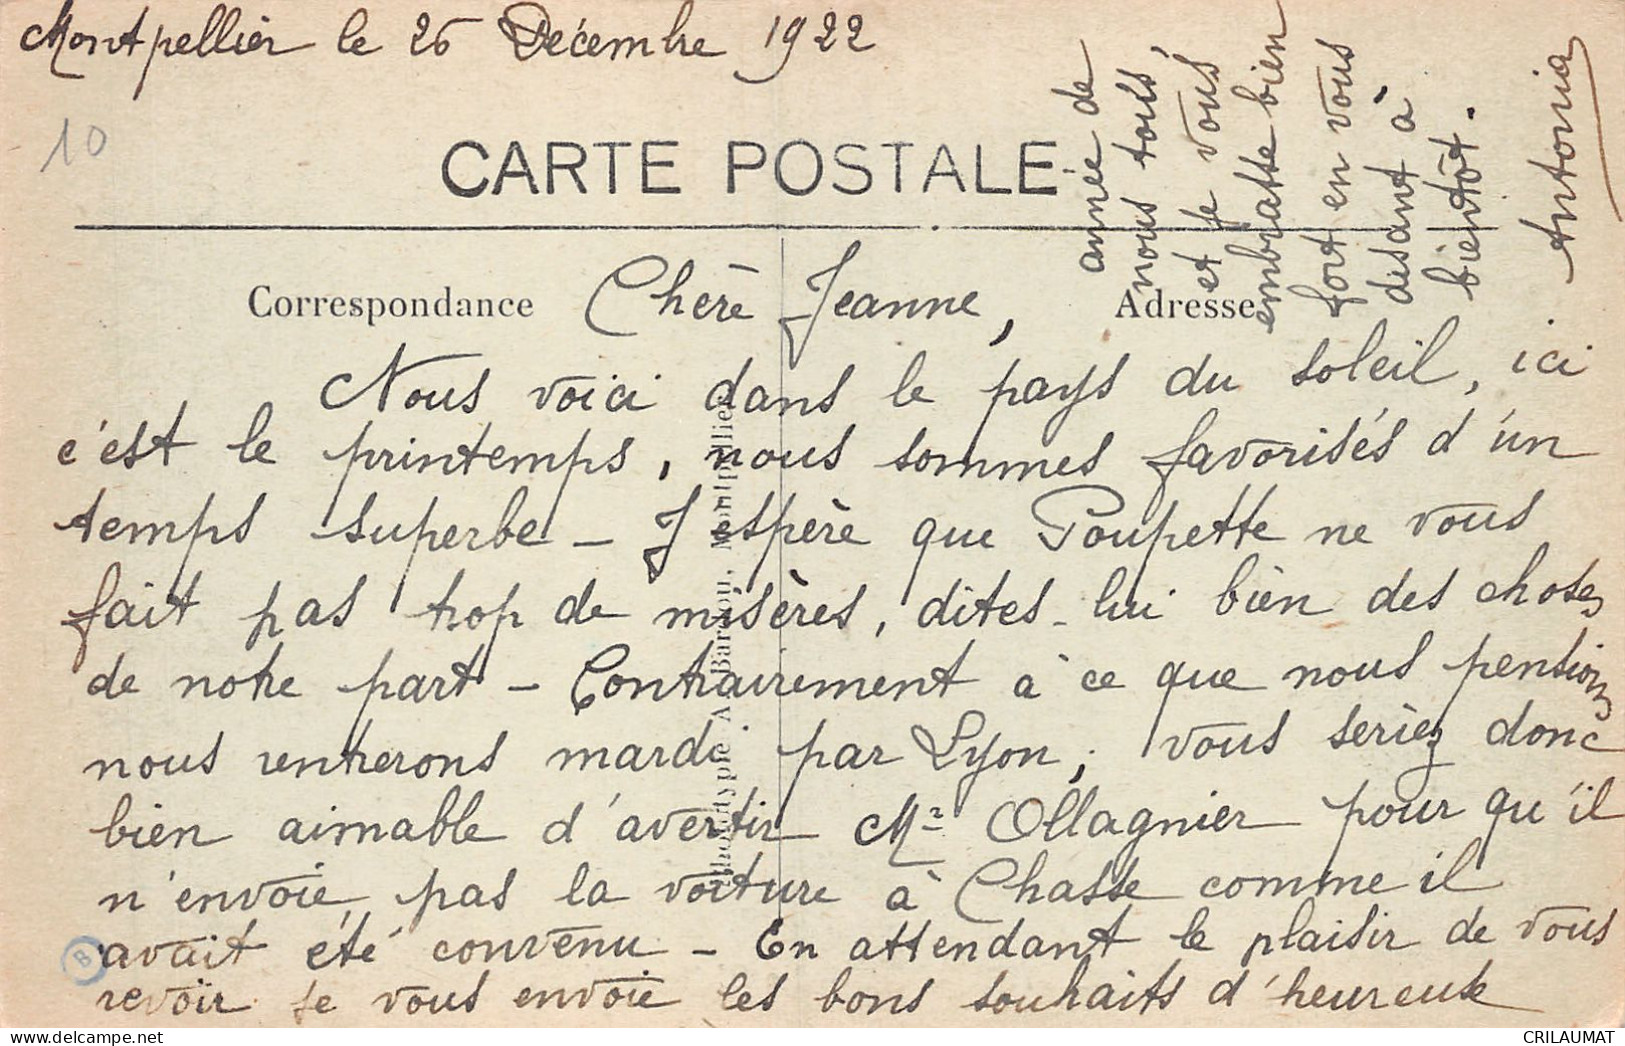 Montpellier le 26 Décembre 1922
10
CARTE POSTALE
Correspondance
Adresse
Chère Jeanne,
Nous voici dans le pays du soleil, ici
c'est le printemps, nous sommes favorisés d'un
temps superbe - J'espère que Poupette ne vous
fait pas trop de misères, dites-lui bien des choses
de notre part - Contrairement à ce que nous pensions
nous rentrerons mardi par Lyon, vous seriez donc
bien aimable d'avertir Mr Ollagnier pour qu'il
n'envoie pas la voiture à Chasse comme il
avait été convenu - En attendant le plaisir de vous
revoir je vous envoie les bons souhaits d'heureuse
année de
nous tous,
et je vous
embrasse bien
fort en vous
disant à
bientôt.
Antonia
Montpellier
B
CRILAUMAT